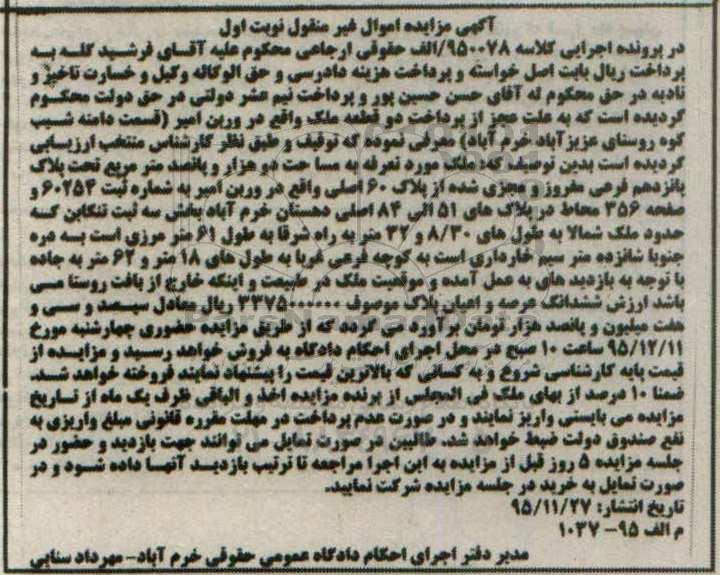 آگهی مزایده اموال غیر منقول نوبت اول
در پرونده اجرایی کلاسه ۹۵۰۰۷۸/الف حقوقی ارجاعی محکوم علیه آقای فرشید گله به
پرداخت ریال بابت اصل خواسته و پرداخت هزینه دادرسی و حق الوکاله وکیل و خسارت تاخیر و
تادیه در حق محکوم له آقای حسن حسین پور و پرداخت نیم عشر دولتی در حق دولت محکوم
گردیده است که به علت عجز از پرداخت دو قطعه ملک واقع در وربن امیر (قسمت دامنه شیب
کوه روستای عزیزآباد خرم آباد) معرفی نموده که توقیف و طبق نظر کارشناس منتخب ارزیسابی
گردیده است بدین توصیف که: ملک مورد تعرفه به مساحت دو هزار و پانصد متر مربع تحت پلاک
پانزدهم فرعی مفروز و مجزی شده از پلاک ۶۰ اصلی واقع در وربن امیر به شماره ثبت ۶۰۲۵۴ و
صفحه ۳۵۶ محاط در پلاک های ۵۱ الی ۸۴ اصلی دهستان خرم آباد بخش سه ثبت تنکابن که
حدود ملک شمالا به طول های ۸/۳۰ و ۳۲ متر به راه شرقا به طول ۶۱ متر مرزی است به دره
جنوبا شانزده متر سیم خارداری است به کوچه فرعی غربا به طول های ۱۸ متر و ۶۲ متر به جاده
با توجه به بازدید های به عمل آمده و موقعیت ملک در طبیعت و اینکه خارج از بافت روستا می
باشد ارزش ششدانگ عرصه و اعیان پلاک موصوف ۳۳۷۵۰۰۰۰۰۰ ریال معادل سیصد و سی و
هفت میلیون و پانصد هزار تومان برآورد می گردد که از طریق مزایده حضوری چهارشنبه مورخ
۹۵/۱۲/۱۱ ساعت ۱۰ صبح در محل اجرای احکام دادگاه به فروش خواهد رسید و مزایده از
قیمت پایه کارشناسی شروع و به کسانی که بالاترین قیمت را پیشنهاد نمایند فروخته خواهد شد.
ضمنا ۱۰ درصد از بهای ملک فی المجلس از برنده مزایده اخذ و الباقی ظرف یک ماه از تاریخ
مزایده می بایستی واریز نمایند و در صورت عدم پرداخت در مهلت مقرره قانونی مبلغ واریزی به
نفع صندوق دولت ضبط خواهد شد. طالبین در صورت تمایل می توانند جهت بازدید و حضور در
جلسه مزایده ۵ روز قبل از مزایده به این اجرا مراجعه تا ترتیب بازدید آنها داده شود و در
صورت تمایل به خرید در جلسه مزایده شرکت نمایید.
تاریخ انتشار: ۹۵/۱۱/۲۷
م الف ۹۵- ۱۰۳۷
مدیر دفتر اجرای احکام دادگاه عمومی حقوقی خرم آباد- مهرداد سنایی